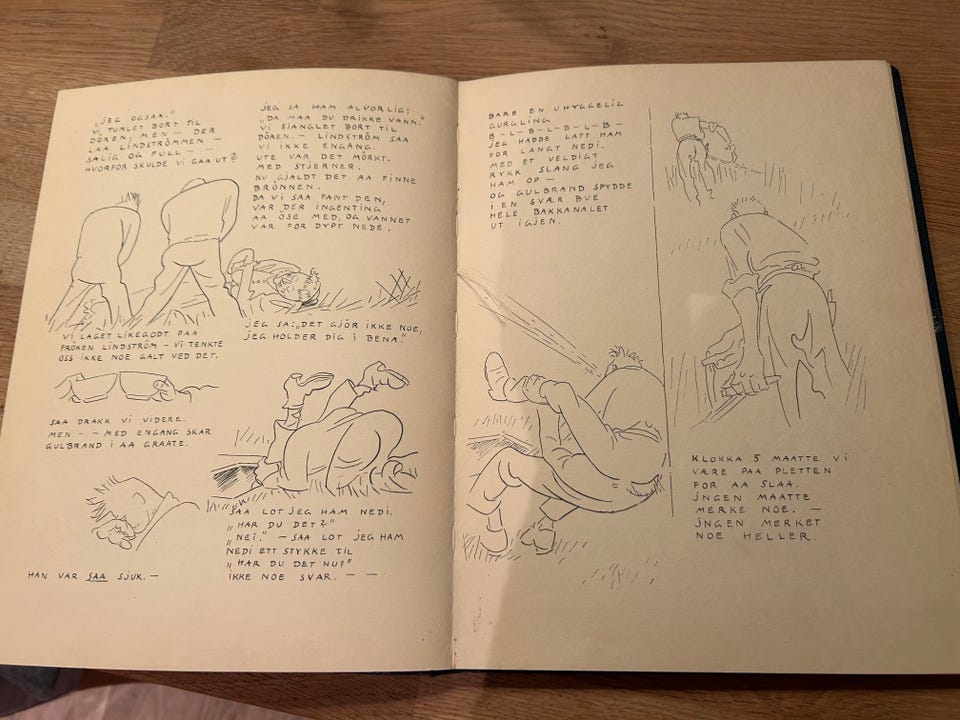 „JEG OGSAA."
VI TUMLET BORT TIL
DÖREN, MEN — DER
LAA LINDSTRÖMMEN —
SALIG OG FULL — —
HVORFOR SKULDE VI GAA UT?
VI LAGET LIKEGODT PAA
FRÖKEN LINDSTRÖM — VI TENKTE
OSS IKKE NOE GALT VED DET.
SAA DRAKK VI VIDERE.
MEN — — MED ENGANG SKAR
GULBRAND I AA GRAATE.
HAN VAR SAA SJUK. —
JEG SA HAM ALVORLIG:
„DA MAA DU DRIKKE VANN."
VI SJANGLET BORT TIL
DÖREN. — LINDSTRÖM SAA
VI IKKE ENGANG.
UTE VAR DET MÖRKT.
MED STJERNER.
NU GJALDT DET AA FINNE
BRÖNNEN.
DA VI SAA FANT DEN,
VAR DER INGENTING
AA ÖSE MED, OG VANNET
VAR FOR DYPT NEDE.
JEG SA: „DET GJÖR IKKE NOE,
JEG HOLDER DIG I BENA."
SAA LOT JEG HAM NEDI.
„HAR DU DET?"
„NEI." — SAA LOT JEG HAM
NEDI ETT STYKKE TIL
„HAR DU DET NU?"
IKKE NOE SVAR. — —
BARE EN UHYGGELIG
GURGLING
B-L-B-L-B-L-B-
JEG HADDE LATT HAM
FOR LANGT NEDI.
MED ET VELDIGT
RYKK SLANG JEG
HAM OP —
OG GULBRAND SPYDDE
I EN SVÆR BUE
HELE BAKKANALET
UT IGJEN.
KLOKKA 5 MAATTE VI
VÆRE PAA PLETTEN
FOR AA SLAA.
JNGEN MAATTE
MERKE NOE. —
JNGEN MERKET
NOE HELLER.